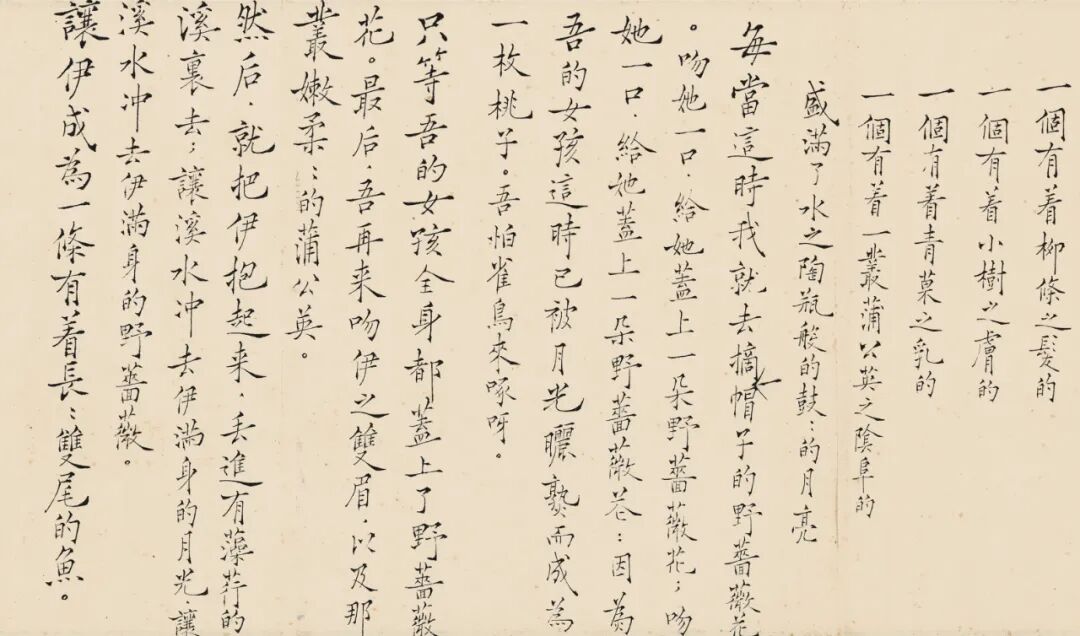 一個有着柳條之髮的
一個有着小樹之膚的
一個有着青菓之乳的
一個有着一叢蒲公英之陰阜的
盛滿了水之陶瓶般的鼓:的月亮
每當這時我就去摘帽子的野薔薇花
。吻她一口.給她蓋上一朵野薔薇花;吻
她一口.給她蓋上一朵野薔薇花:因為
吾的女孩這時已被月光曬熟而成為
一枚桃子。吾怕雀鳥來啄呀。
只等吾的女孩全身都蓋上了野薔薇
花。最后.吾再来吻伊之雙眉.以及那
叢嫩柔:的蒲公英。
然后.就把伊抱起来.丢進有藻荇的
溪裏去;讓溪水冲去伊满身的月光.讓
溪水冲去伊满身的野薔薇。
讓伊成為一條有着長:雙尾的魚。